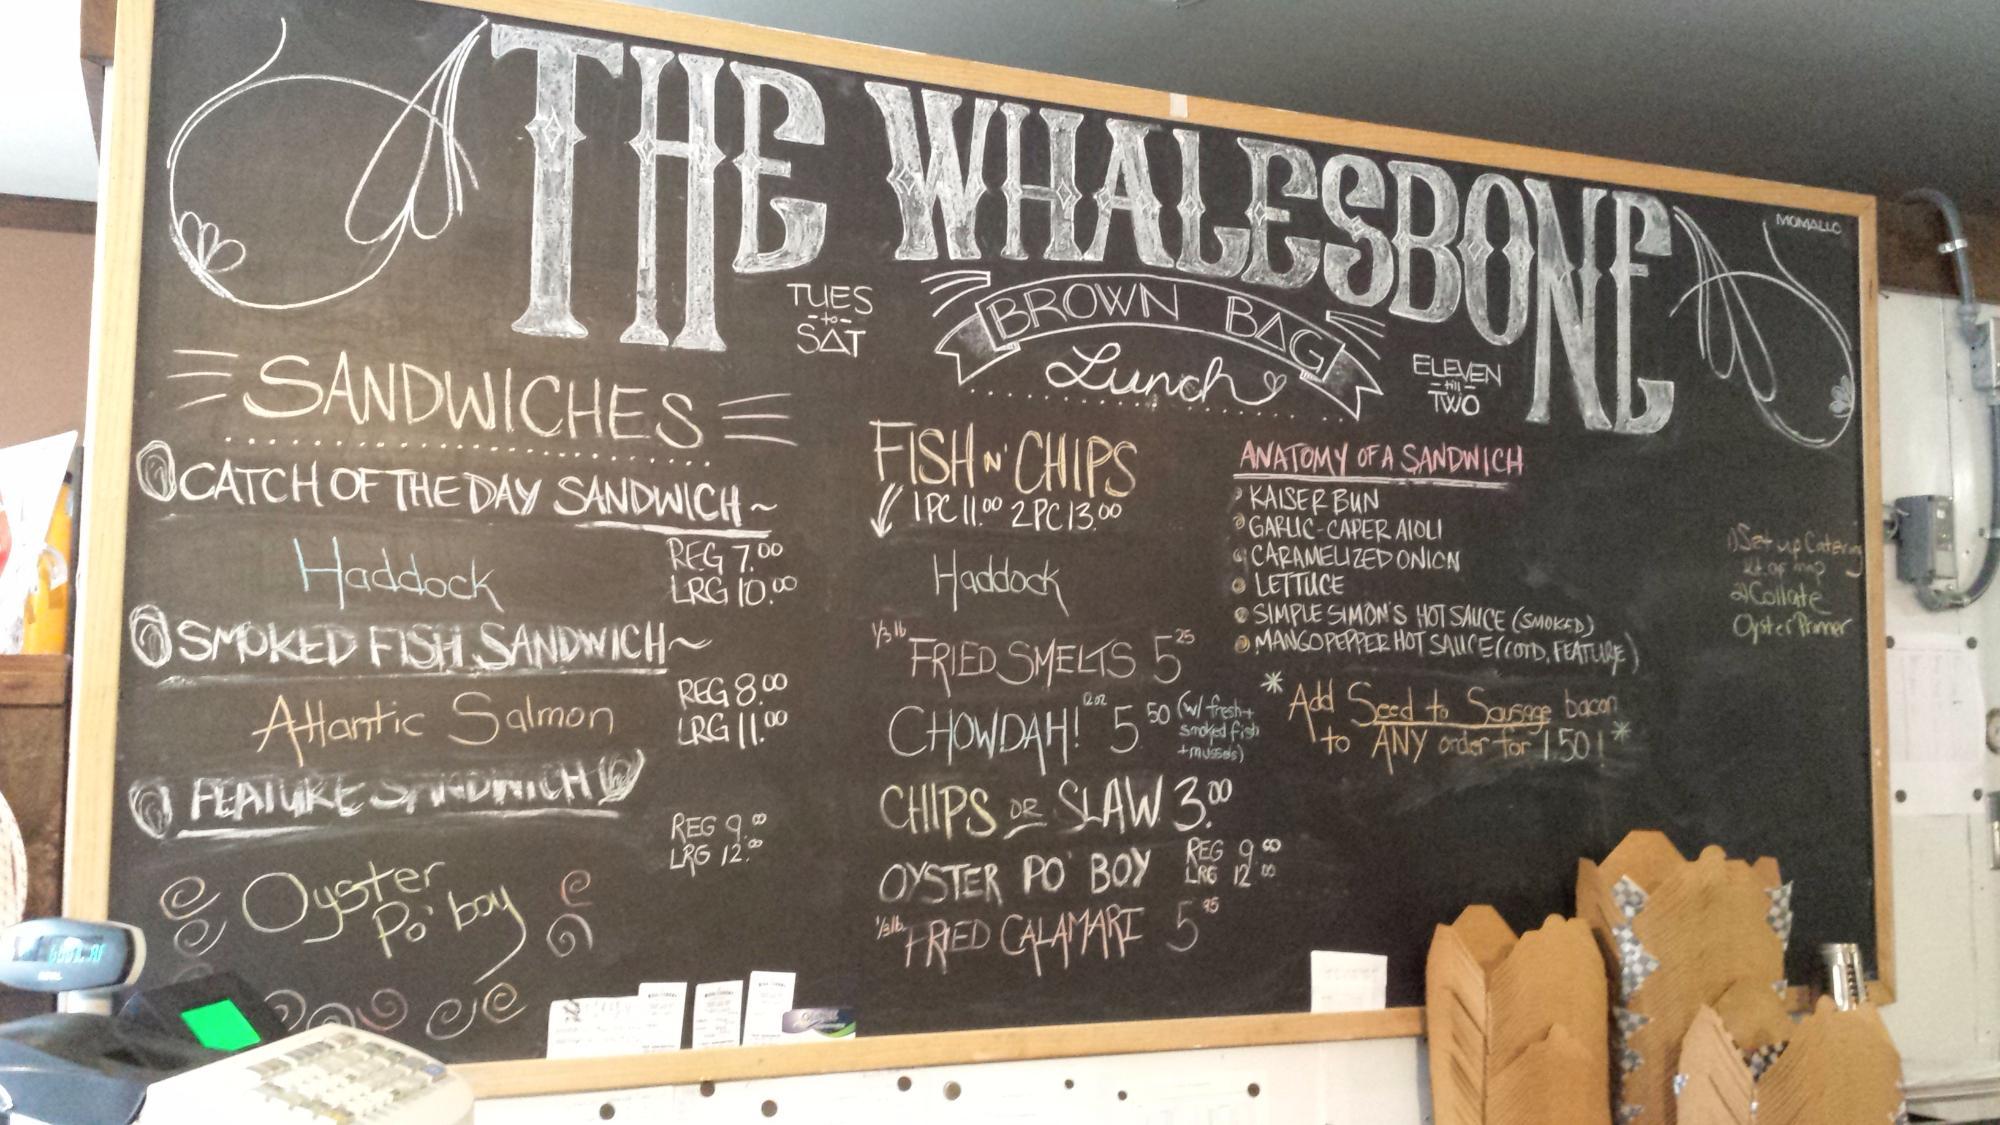 THE WHALESBONE
MOMALLO
TUES
-to-
SAT
BROWN BAG
Lunch
ELEVEN
- till -
TWO
SANDWICHES
CATCH OF THE DAY SANDWICH ~
Haddock
REG 7.00
LRG 10.00
SMOKED FISH SANDWICH ~
Atlantic Salmon
REG 8.00
LRG 11.00
FEATURE SANDWICH
REG 9.00
LRG 12.00
Oyster
Po' boy
FISH N' CHIPS
1PC 11.00 2PC 13.00
Haddock
1/3 lb FRIED SMELTS 5 25
CHOWDAH! 12oz 5.50 (w/ fresh +
smoked fish
+ mussels)
CHIPS OR SLAW 3.00
OYSTER PO' BOY REG 9.00
LRG 12.00
1/3 lb. FRIED CALAMARI 5 95
ANATOMY OF A SANDWICH
KAISER BUN
GARLIC-CAPER AIOLI
CARAMELIZED ONION
LETTUCE
SIMPLE SIMON'S HOT SAUCE (SMOKED)
MANGO PEPPER HOT SAUCE (COTD, FEATURE)
* Add Seed to Sausage bacon
to ANY order for 1.50! *
1) Set up Catering
2) Collate
Oyster Primer